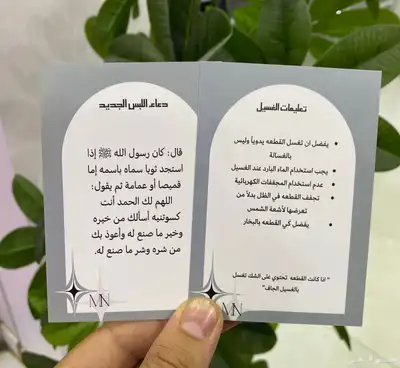 دعاء اللبس الجديد
قال: كان رسول الله ﷺ إذا
استجد ثوبا سماه باسمه إما
قميصا أو عمامة ثم يقول:
اللهم لك الحمد أنت
كسوتنيه أسألك من خيره
وخير ما صنع له وأعوذ بك
من شره وشر ما صنع له.
MN
تعليمات الغسيل
يفضل ان تغسل القطعه يدوياً وليس
بالغسالة
يجب استخدام الماء البارد عند الغسيل
عدم استخدام المجففات الكهربائية
تجفف القطعه في الظل بدلاً من
تعرضها لأشعة الشمس
يفضل كي القطعه بالبخار
" اذا كانت القطعه تحتوي على الشك تغسل
بالغسيل الجاف"
MN